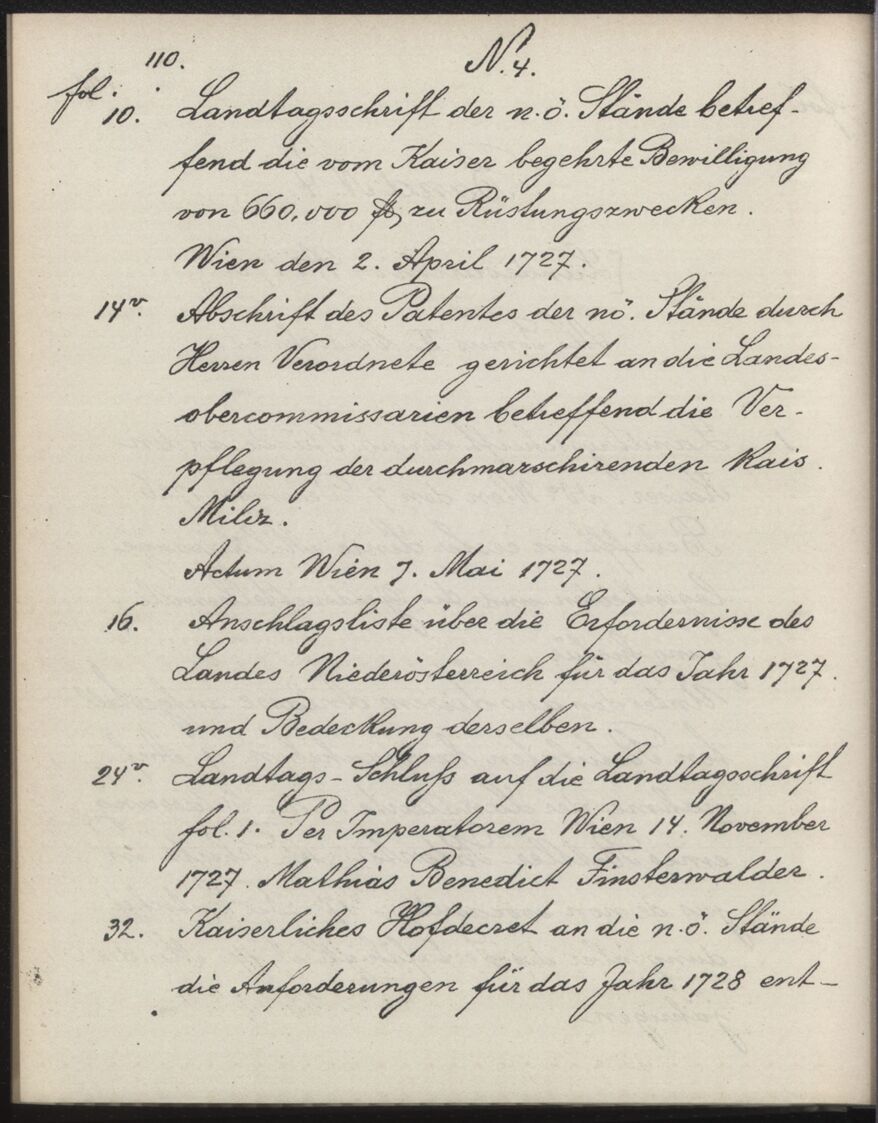 110. N. 4.
fol. 10. Landtagsschrift der n.ö. Stände betref-
fend die vom Kaiser begehrte Bewilligung
von 660.000 fl, zu Rüstungszwecken.
Wien den 2. April 1727.
14v. Abschrift des Patentes der nö. Stände durch
Herren Verordnete gerichtet an die Landes-
obercommissarien betreffend die Ver-
pflegung der durchmarschirenden Kais.
Miliz.
Actum Wien 7. Mai 1727.
16. Anschlagsliste über die Erfordernisse des
Landes Niederösterreich für das Jahr 1727.
und Bedeckung derselben.
24v. Landtags-Schluß auf die Landtagsschrift
fol. 1. Per Imperatorem Wien 14. November
1727. Mathias Benedict Finsterwalder.
32. Kaiserliches Hofdecret an die n.ö. Stände
die Anforderungen für das Jahr 1728 ent-